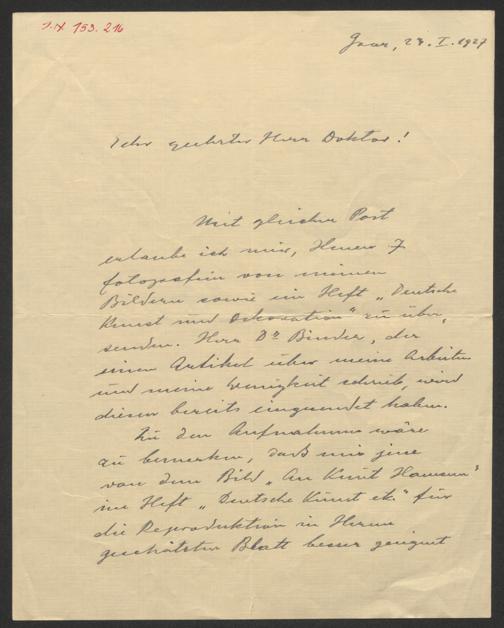 I.N. 153.216
Graz, 28. I. 1927
Sehr geehrter Herr Doktor!
Mit gleicher Post
erlaube ich mir, Ihnen 7
fotografien von meinen
Bildern sowie ein Heft „Deutsche
Kunst und Dekoration“ zu über-
senden. Herr Dr Binder, der
einen Artikel über meine Arbeiten
und meine Wenigkeit schrieb, wird
diesen bereits eingesendet haben.
Zu den Aufnahmen wäre
zu bemerken, daß mir jene
von dem Bild „An Knut Hamsun“
im Heft „Deutsche Kunst etc.“ für
die Reproduktion in Ihrem
geschätzten Blatt besser geeignet